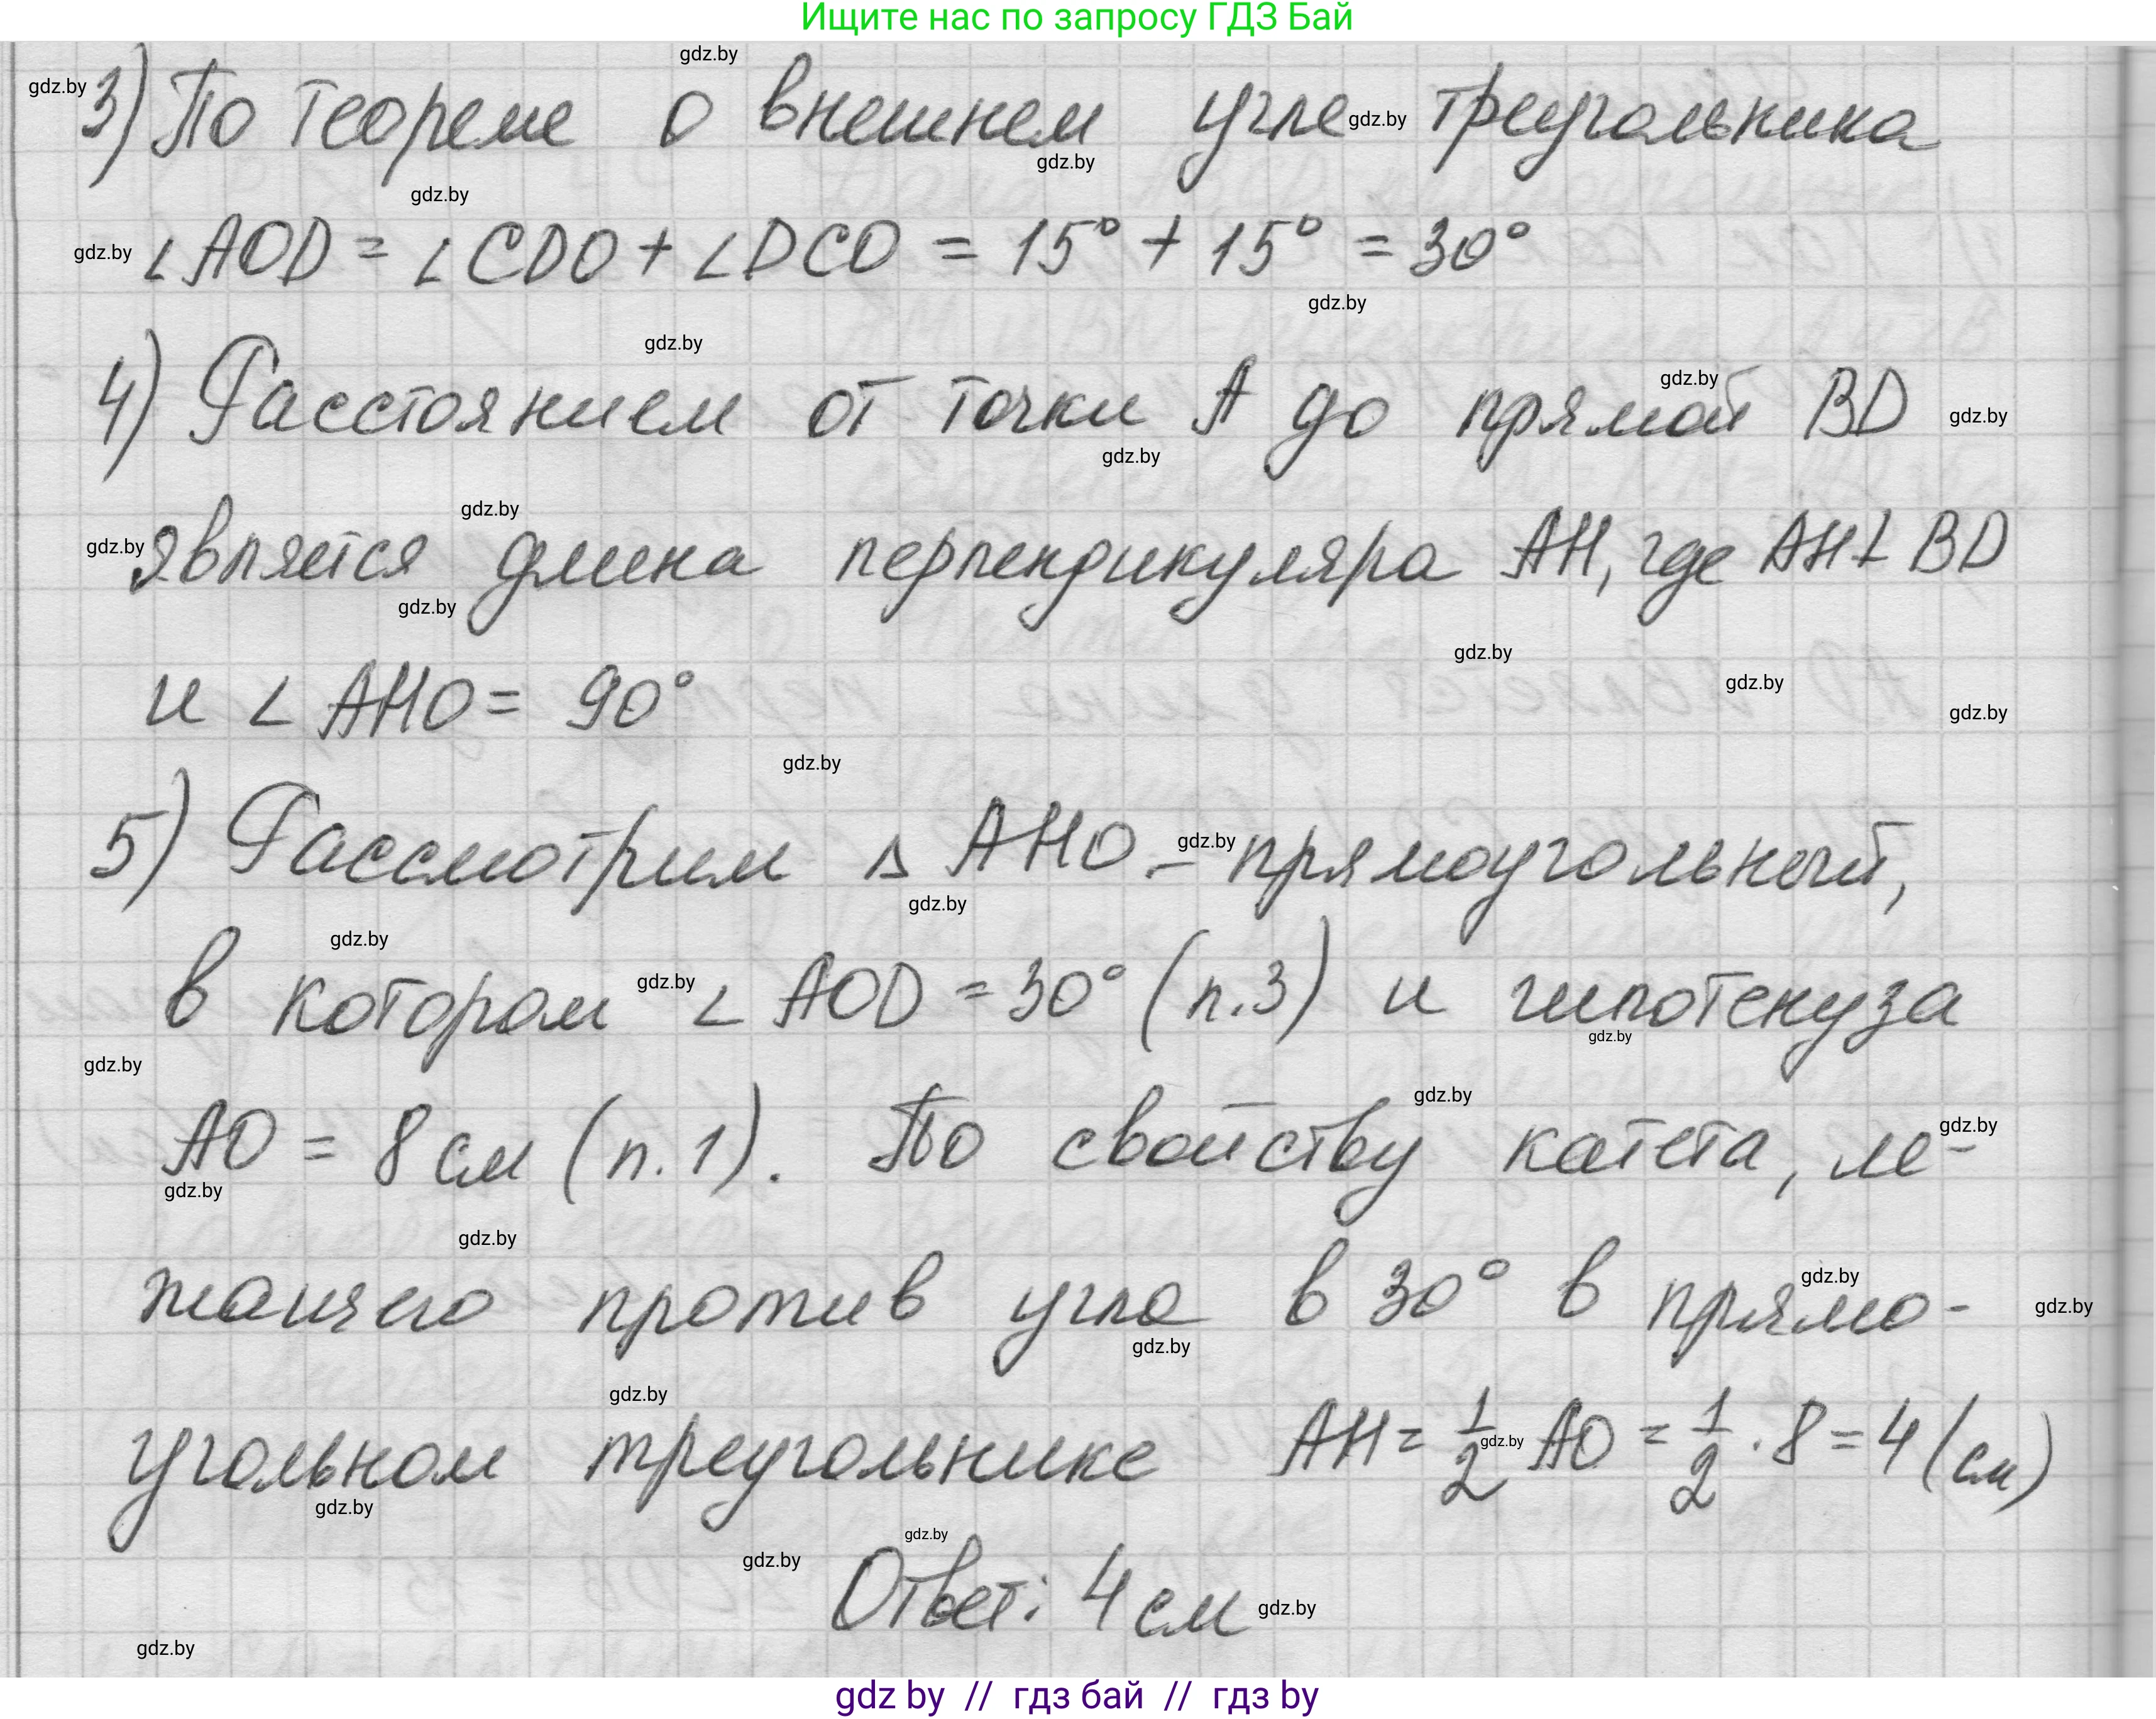 Ищите нас по запросу ГДЗ Бай
gdz.by
gdz.by 3) По теореме о внешнем угле gdz.by треугольника
gdz.by
gdz.by
gdz.by ∠AOD = ∠CDO + ∠DCO = 15° + 15° = 30°
gdz.by
gdz.by
4) Расстоянием от точки A до прямой BD
gdz.by
gdz.by
gdz.by
gdz.by
gdz.by является длина перпендикуляра AH, где AH⊥BD
gdz.by
gdz.by
и ∠AHO = 90°
gdz.by
gdz.by
gdz.by
5) Рассмотрим △ AHO - gdz.by прямоугольный,
gdz.by
gdz.by
в котором gdz.by ∠AOD = 30° (п.3) и гипотенуза
gdz.by
gdz.by
gdz.by
AO = 8 см (п.1). По свойству катета, ле-
gdz.by
gdz.by
gdz.by
gdz.by
жащего против угла в 30° в прямо-
gdz.by
gdz.by
gdz.by
угольном треугольнике AH = 1/2 gdz.by AO = 1/2 · 8 = 4 (см)
gdz.by
gdz.by
gdz.by
Ответ: 4 см gdz.by
gdz.by
gdz by // гдз бай // гдз by